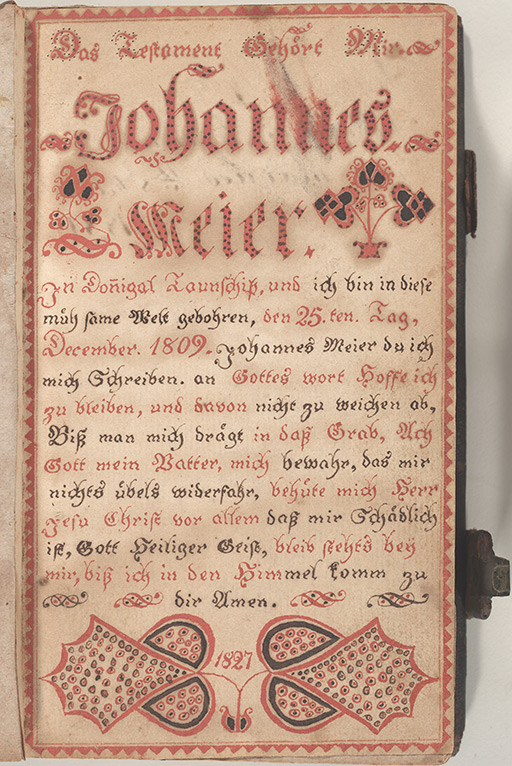 Das Testament Gehört Mir
Johannes
Meier.
Jn Doñigal Taunschip, und ich bin in diese
müh same Welt gebohren, den 25.ten. Tag,
December. 1809. Johannes Meier du ich
mich Schreiben. an Gottes wort Hoffe ich
zu bleiben, und davon nicht zu weichen ab,
Biß man mich drägt in daß Grab, Ach
Gott mein Vatter, mich bewahr, das mir
nichts übels widerfahr, behüte mich Herr
Jesu Christ vor allem daß mir Schädlich
ist, Gott Heiliger Geist, bleib stehts bey
mir, biß ich in den Himmel komm zu
dir Amen.
1827